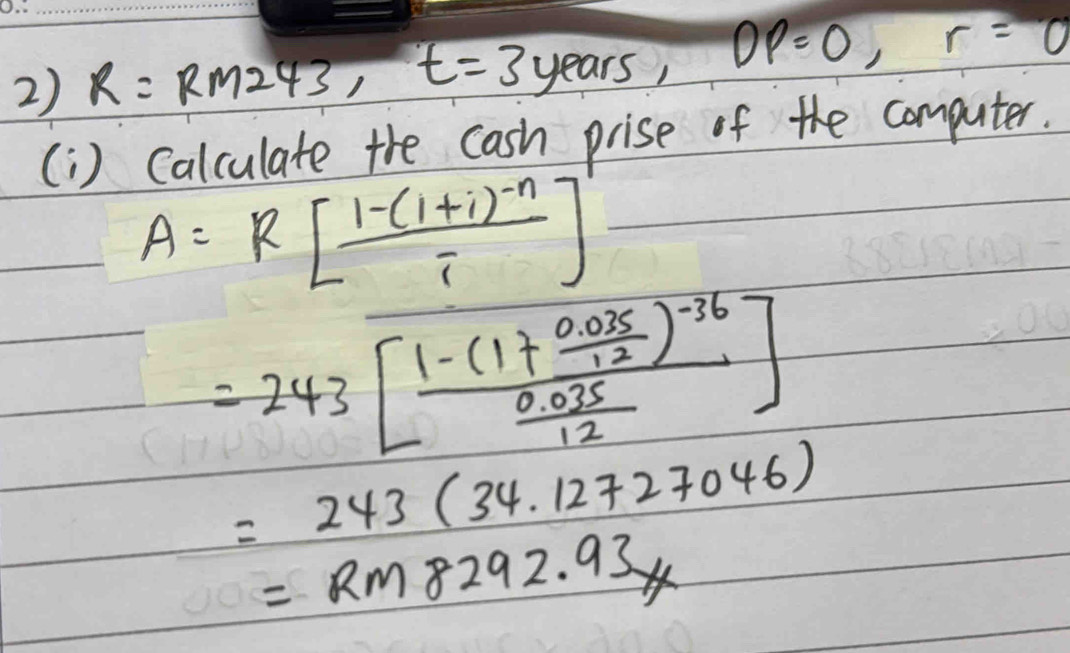 2) R = RM243, t = 3 years, DP = 0, r = 0
(i) Calculate the cash prise of the computer.
A = R [ 1-(1+i)^-n / i ]
= 243 [ 1-(1+ 0.035/12 )^-36 / 0.035/12 ]
= 243 (34.12727046)
= RM 8292.93